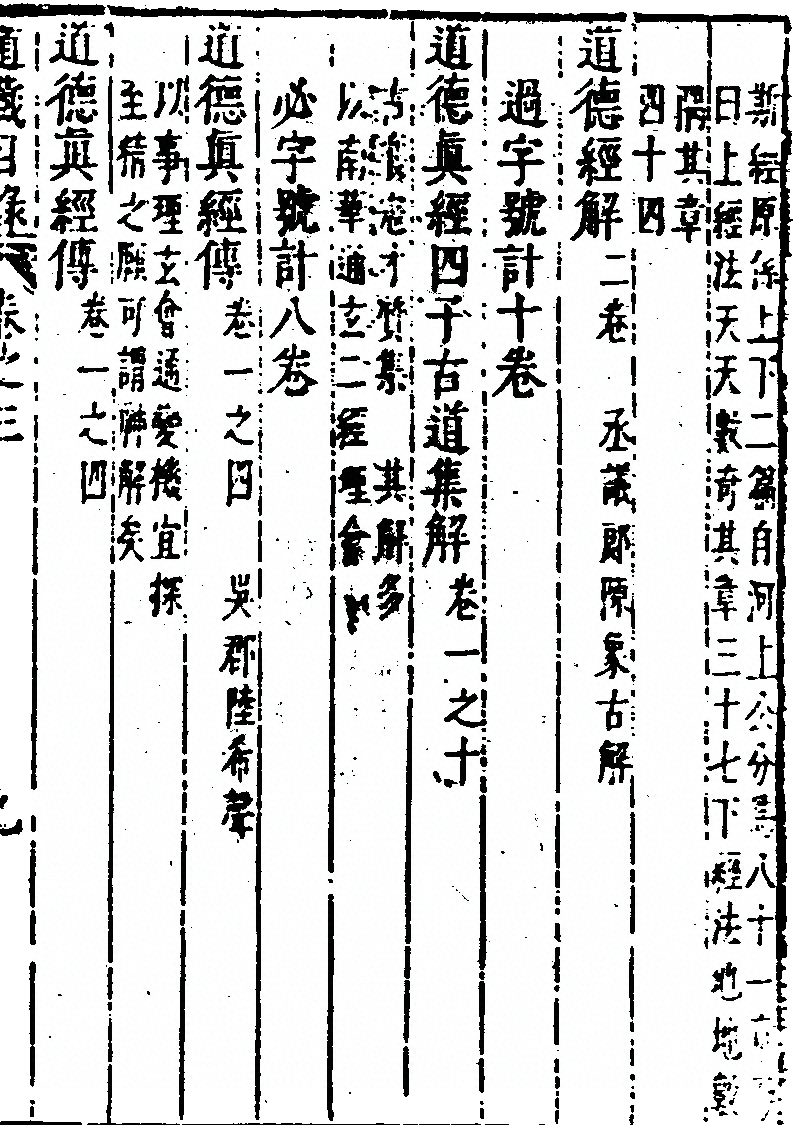 斯經原係上下二篇自河上公分爲八十一
曰上經法天天數奇其章三十七下經法地地數
隅其章
四十四
道德經解二卷　丞議郎陳象古解
過字號計十卷
道德眞經四子古道集解卷一之十
才質集　其解多
以南華通玄二經理會
必字號計八卷
道德眞經傳卷一之四　吳郡陸希聲
以事理玄會通變機宜探
至精之願可謂聯解矣
道德眞經傳卷一之四
道藏目錄卷之三